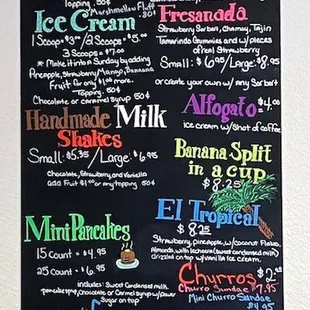 Topping .50¢
Marshmallow Fluff .80¢
Ice Cream
1 Scoop $3.00 / 2 Scoops $5.00
3 Scoops $7.00
* Make it into a Sundae by adding
Pineapple, Strawberry, Mango, Banana
Fruit for only $1.00 more.
Topping .50¢
Chocolate or caramel syrup 50¢
Handmade Milk
Shakes
Small: $5.35 / Large: $6.95
Chocolate, Strawberry, and Vanilla
Add Fruit $1.00 or any topping 50¢
Mini Pancakes
15 Count = $4.95
25 Count = $6.95
includes: Sweet Condensed milk,
pancake syrup, Chocolate or Caramel syrup w/ Power
Sugar on top
Fresanada
Strawberry Sorbet, Chamoy, Tajin
Tamarindo Gummies and w/ pieces
of fresh Strawberry
Small: $6.95 / Large: $8.95
or create your own w/ any Sorbet
Alfogato $4.00
ice cream w/ Shot of coffee
Banana Split
in a cup
$8.25
El Tropical
$8.25
Strawberry, pineapple, w/ Coconut Flakes,
Almonds, w/ lechera (sweet condensed milk)
drizzled on top w/ Vanilla ice Cream.
Churros $2.
Churro Sundae $7.95
Mini Churro Sundae
$4.95